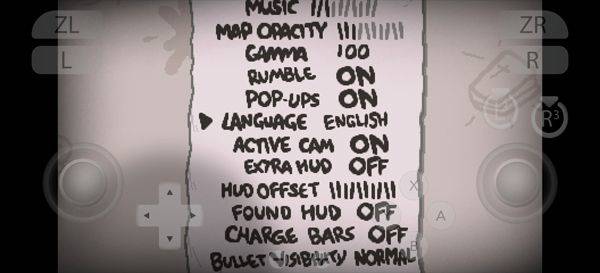 MUSIC
MAP OPACITY
GAMMA 100
RUMBLE ON
POP-UPS ON
LANGUAGE ENGLISH
ACTIVE CAM ON
EXTRA HUD OFF
HUD OFFSET
FOUND HUD OFF
CHARGE BARS OFF
BULLET VISIBILITY NORMAL
ZL
L
ZR
R
L
R3
X
A
B